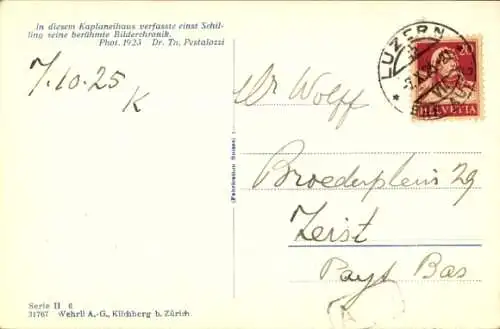 In diesem Kaplaneihaus verfasste einst Schil-
ling seine berühmte Bilderchronik.
Phot. 1923 Dr. Th. Pestalozzi
7.10.25
K
LUZERN
20
HELVETIA
Dr Wolff
Broederplein 29
Zeist
Pays Bas
(Fabrication Suisse)
Serie II 6
31767 Wehrli A.-G., Kilchberg b. Zürich